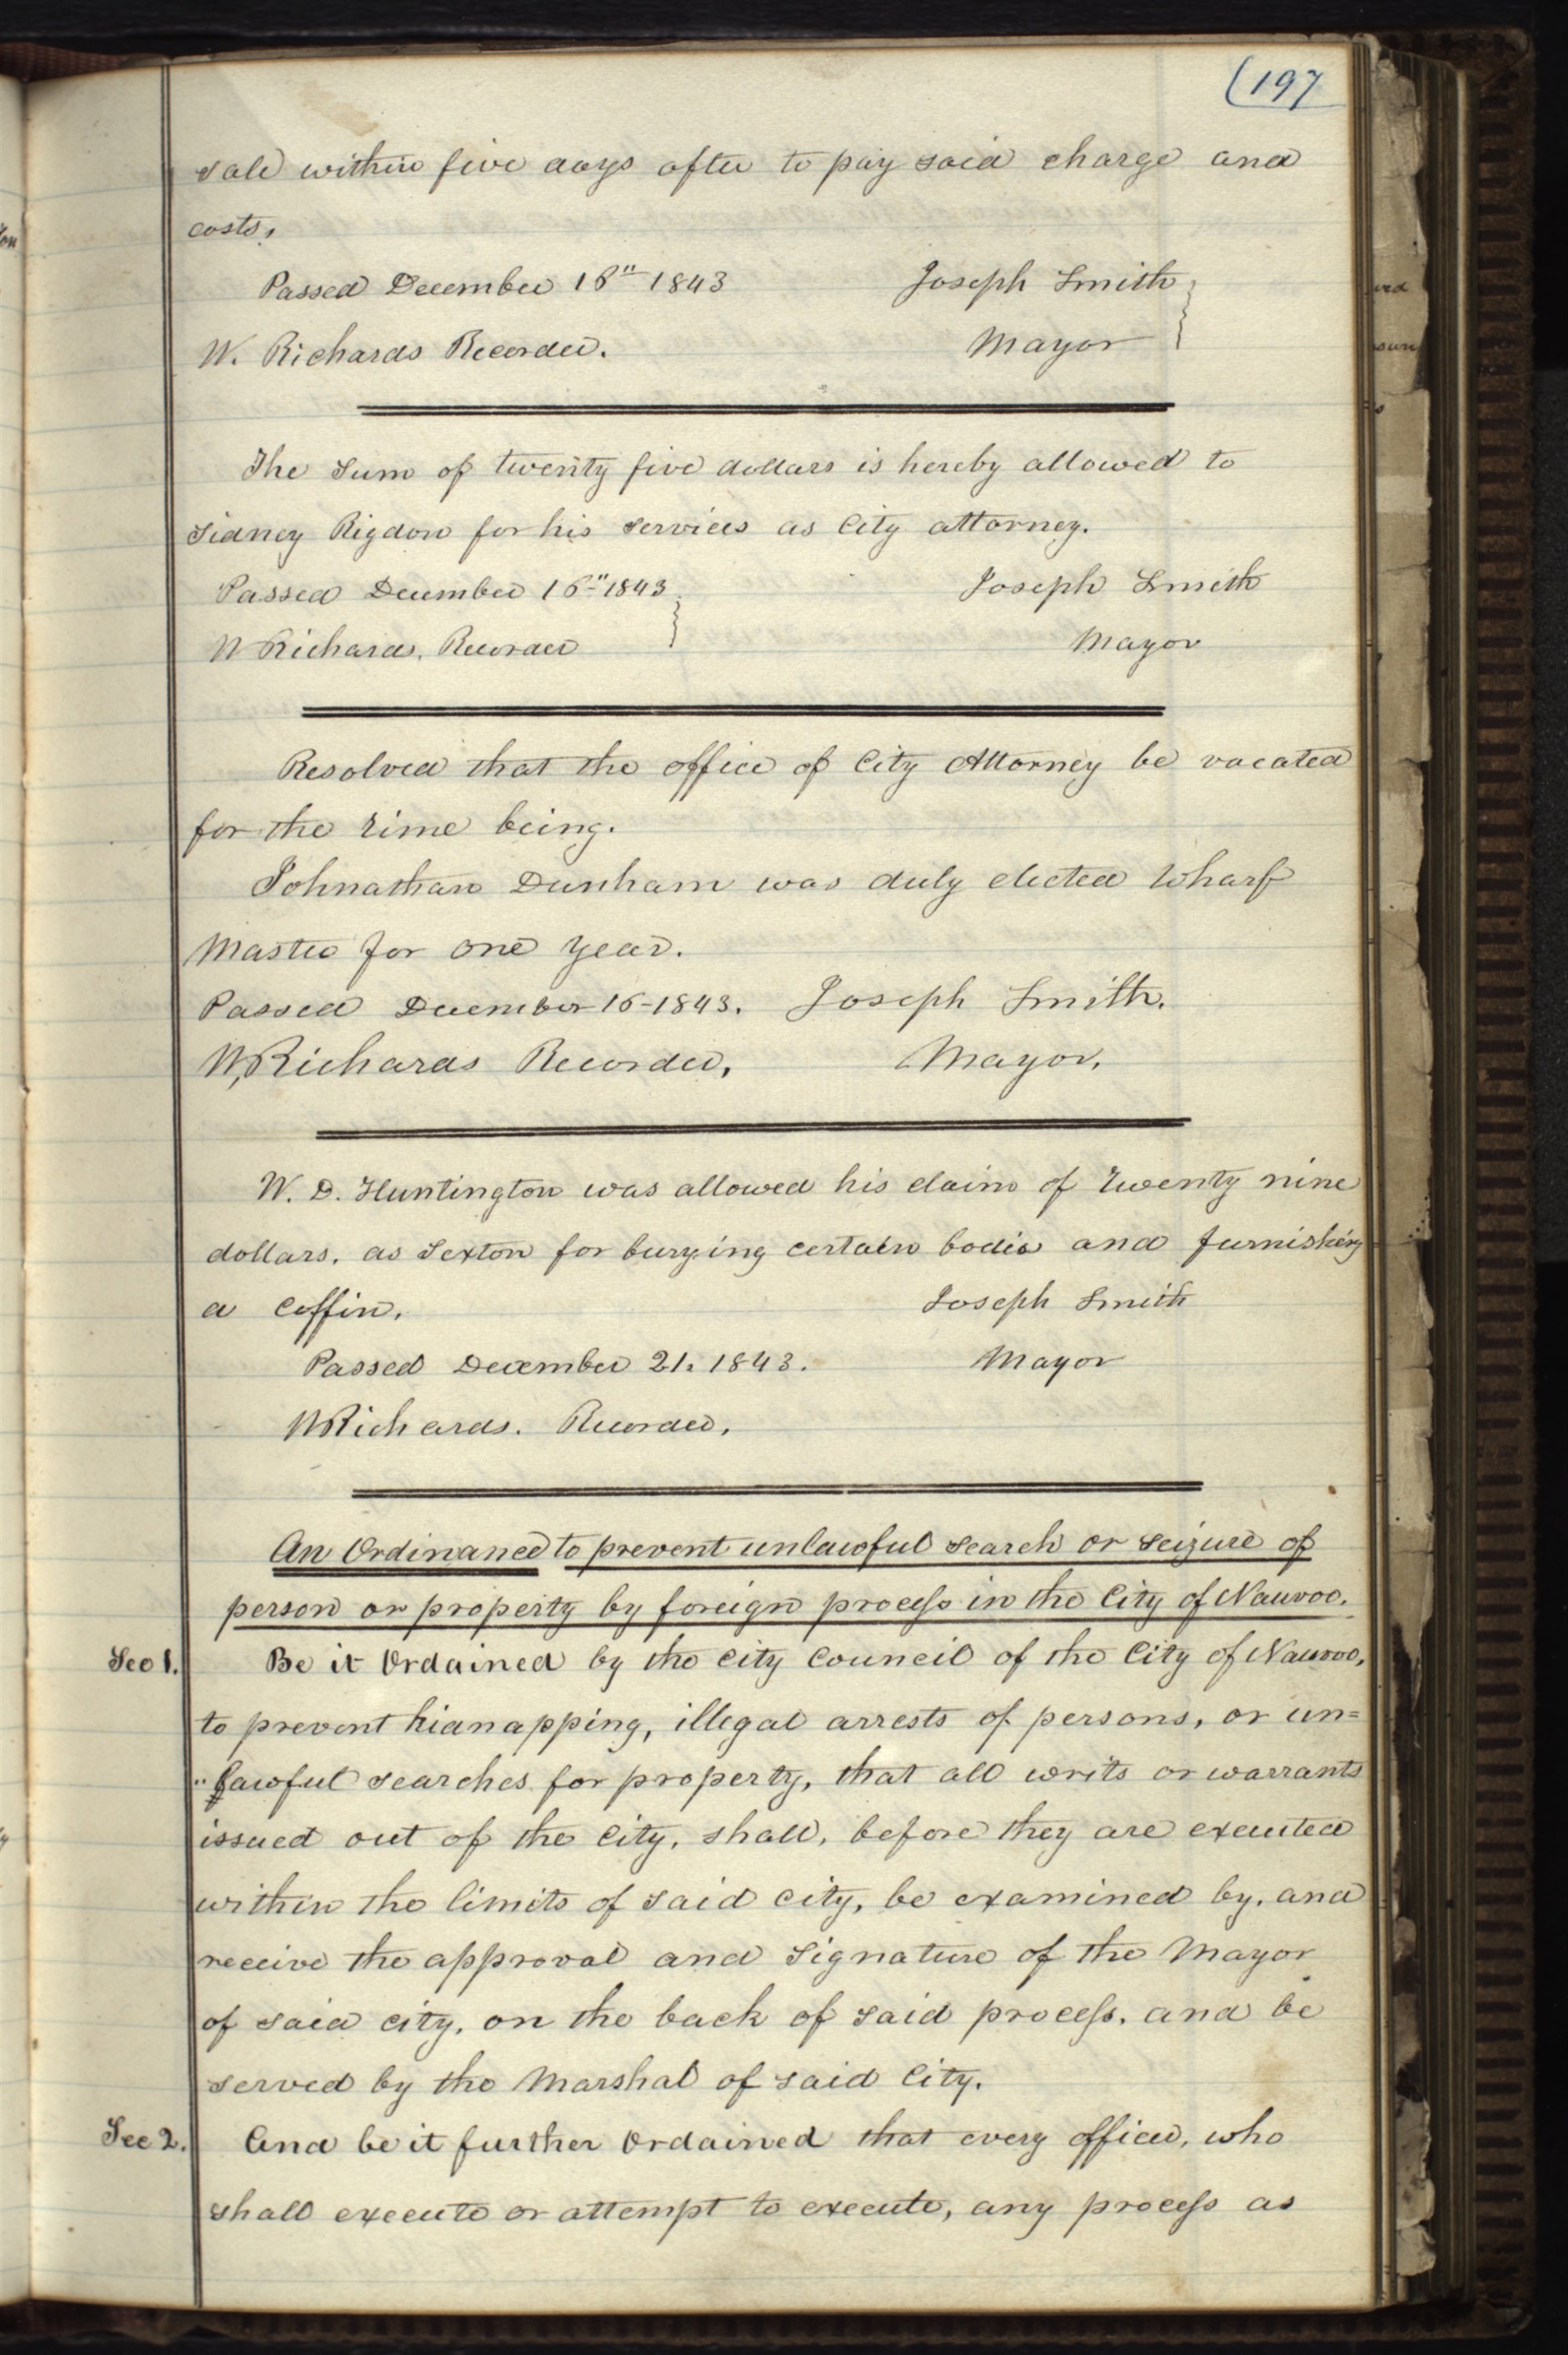 (197
sale within five days after to pay said charge and
costs,
Passed December 16" 1843 Joseph Smith
W. Richards Recorder. Mayor
The Sum of twenty five dollars is hereby allowed to
Sidney Rigdon for his services as City attorney.
Passed December 16" 1843 Joseph Smith
W Richards, Recorder Mayor
Resolved that the office of City Attorney be vacated
for the time being.
Johnathan Dunham was duly elected Wharf
Master for one year.
Passed December 16-1843. Joseph Smith.
W, Richards Recorder, Mayor,
W. D. Huntington was allowed his claim of twenty nine
dollars, as Sexton for burying certain bodies and furnishing
a Coffin. Joseph Smith
Passed December 21. 1843. Mayor
W Richards. Recorder,
An Ordinance to prevent unlawful search or seizure of
person or property by foreign process in the City of Nauvoo.
Sec 1. Be it Ordained by the City Council of the City of Nauvoo,
to prevent kidnapping, illegal arrests of persons, or un=
"lawful searches for property, that all writs or warrants
issued out of the City, shall, before they are executed
within the limits of said city, be examined by, and
receive the approval and Signature of the Mayor
of said city, on the back of said process, and be
served by the Marshal of said City.
Sec 2. And be it further Ordained that every officer, who
shall execute or attempt to execute, any process as